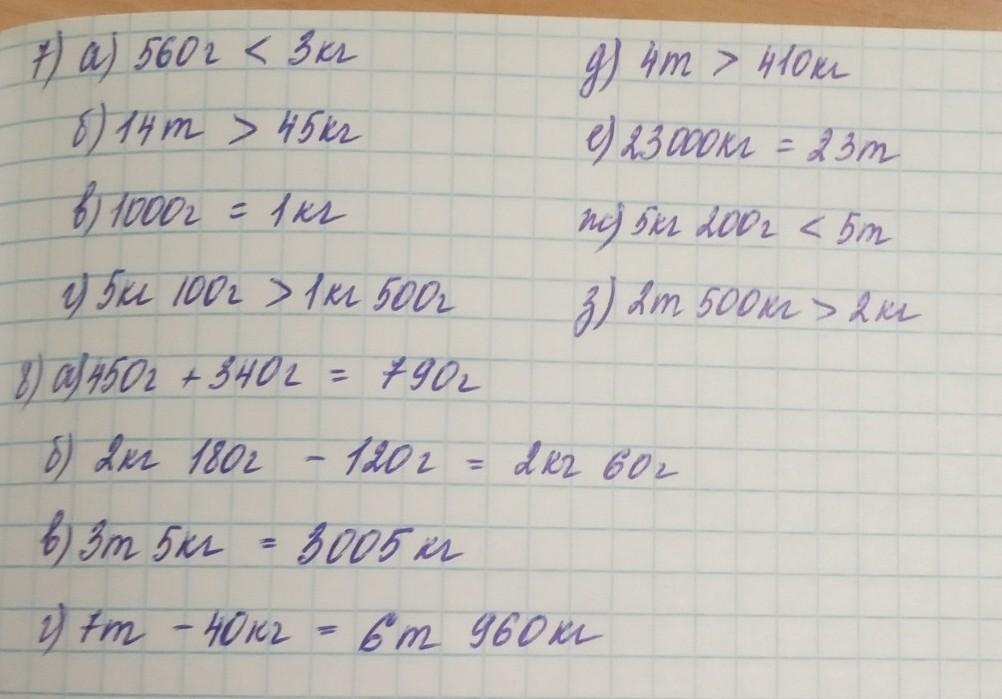 7) а) 560г < 3кг
б) 14т > 45кг
в) 1000г = 1кг
г) 5кг 100г > 1кг 500г
д) 4т > 410кг
е) 23000кг = 23т
ж) 5кг 200г < 5т
з) 2т 500кг > 2кг
8) а) 450г + 340г = 790г
б) 2кг 180г - 120г = 2кг 60г
в) 3т 5кг = 3005кг
г) 7т - 40кг = 6т 960кг